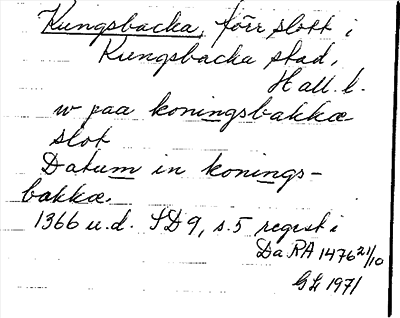 Kungsbacka, förr slott i
Kungsbacka stad,
Hall. l.
w paa koningsbakkæ
slot
Datum in konings-
bakkæ.
1366 u.d. SD 9, s.5 regest i
Da RA 1476 21/10
GL 1971